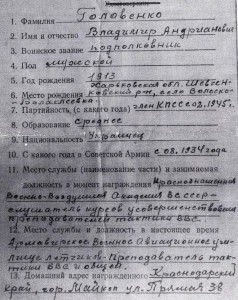 1. Фамилия Головенко
2. Имя и отчество Владимир Андрианович
3. Воинское звание подполковник
4. Пол мужской
5. Год рождения 1913
Харьковская обл. Шевчен-
6. Место рождения ковский р-н, село Волоско-
Балаклеевка
7. Партийность (с какого года) член КПСС с 03.1945 г.
8. Образование среднее
9. Национальность Украинец
10. С какого года в Советской Армии с 08.1934 года
11. Место службы (наименование части) и занимаемая
должность в момент награждения Краснознаменная
Военно-Воздушная Академия ВС СССР -
слушатель курсов усовершенствования
преподавателей тактики ВВС.
12. Место службы и должность в настоящее время
Армавирское Военное Авиационное учи-
лище летчиков - Преподаватель так-
тики ВВС и общей.
13. Домашний адрес награжденного Краснодарский
край, гор. Майкоп ул. Прямая 38